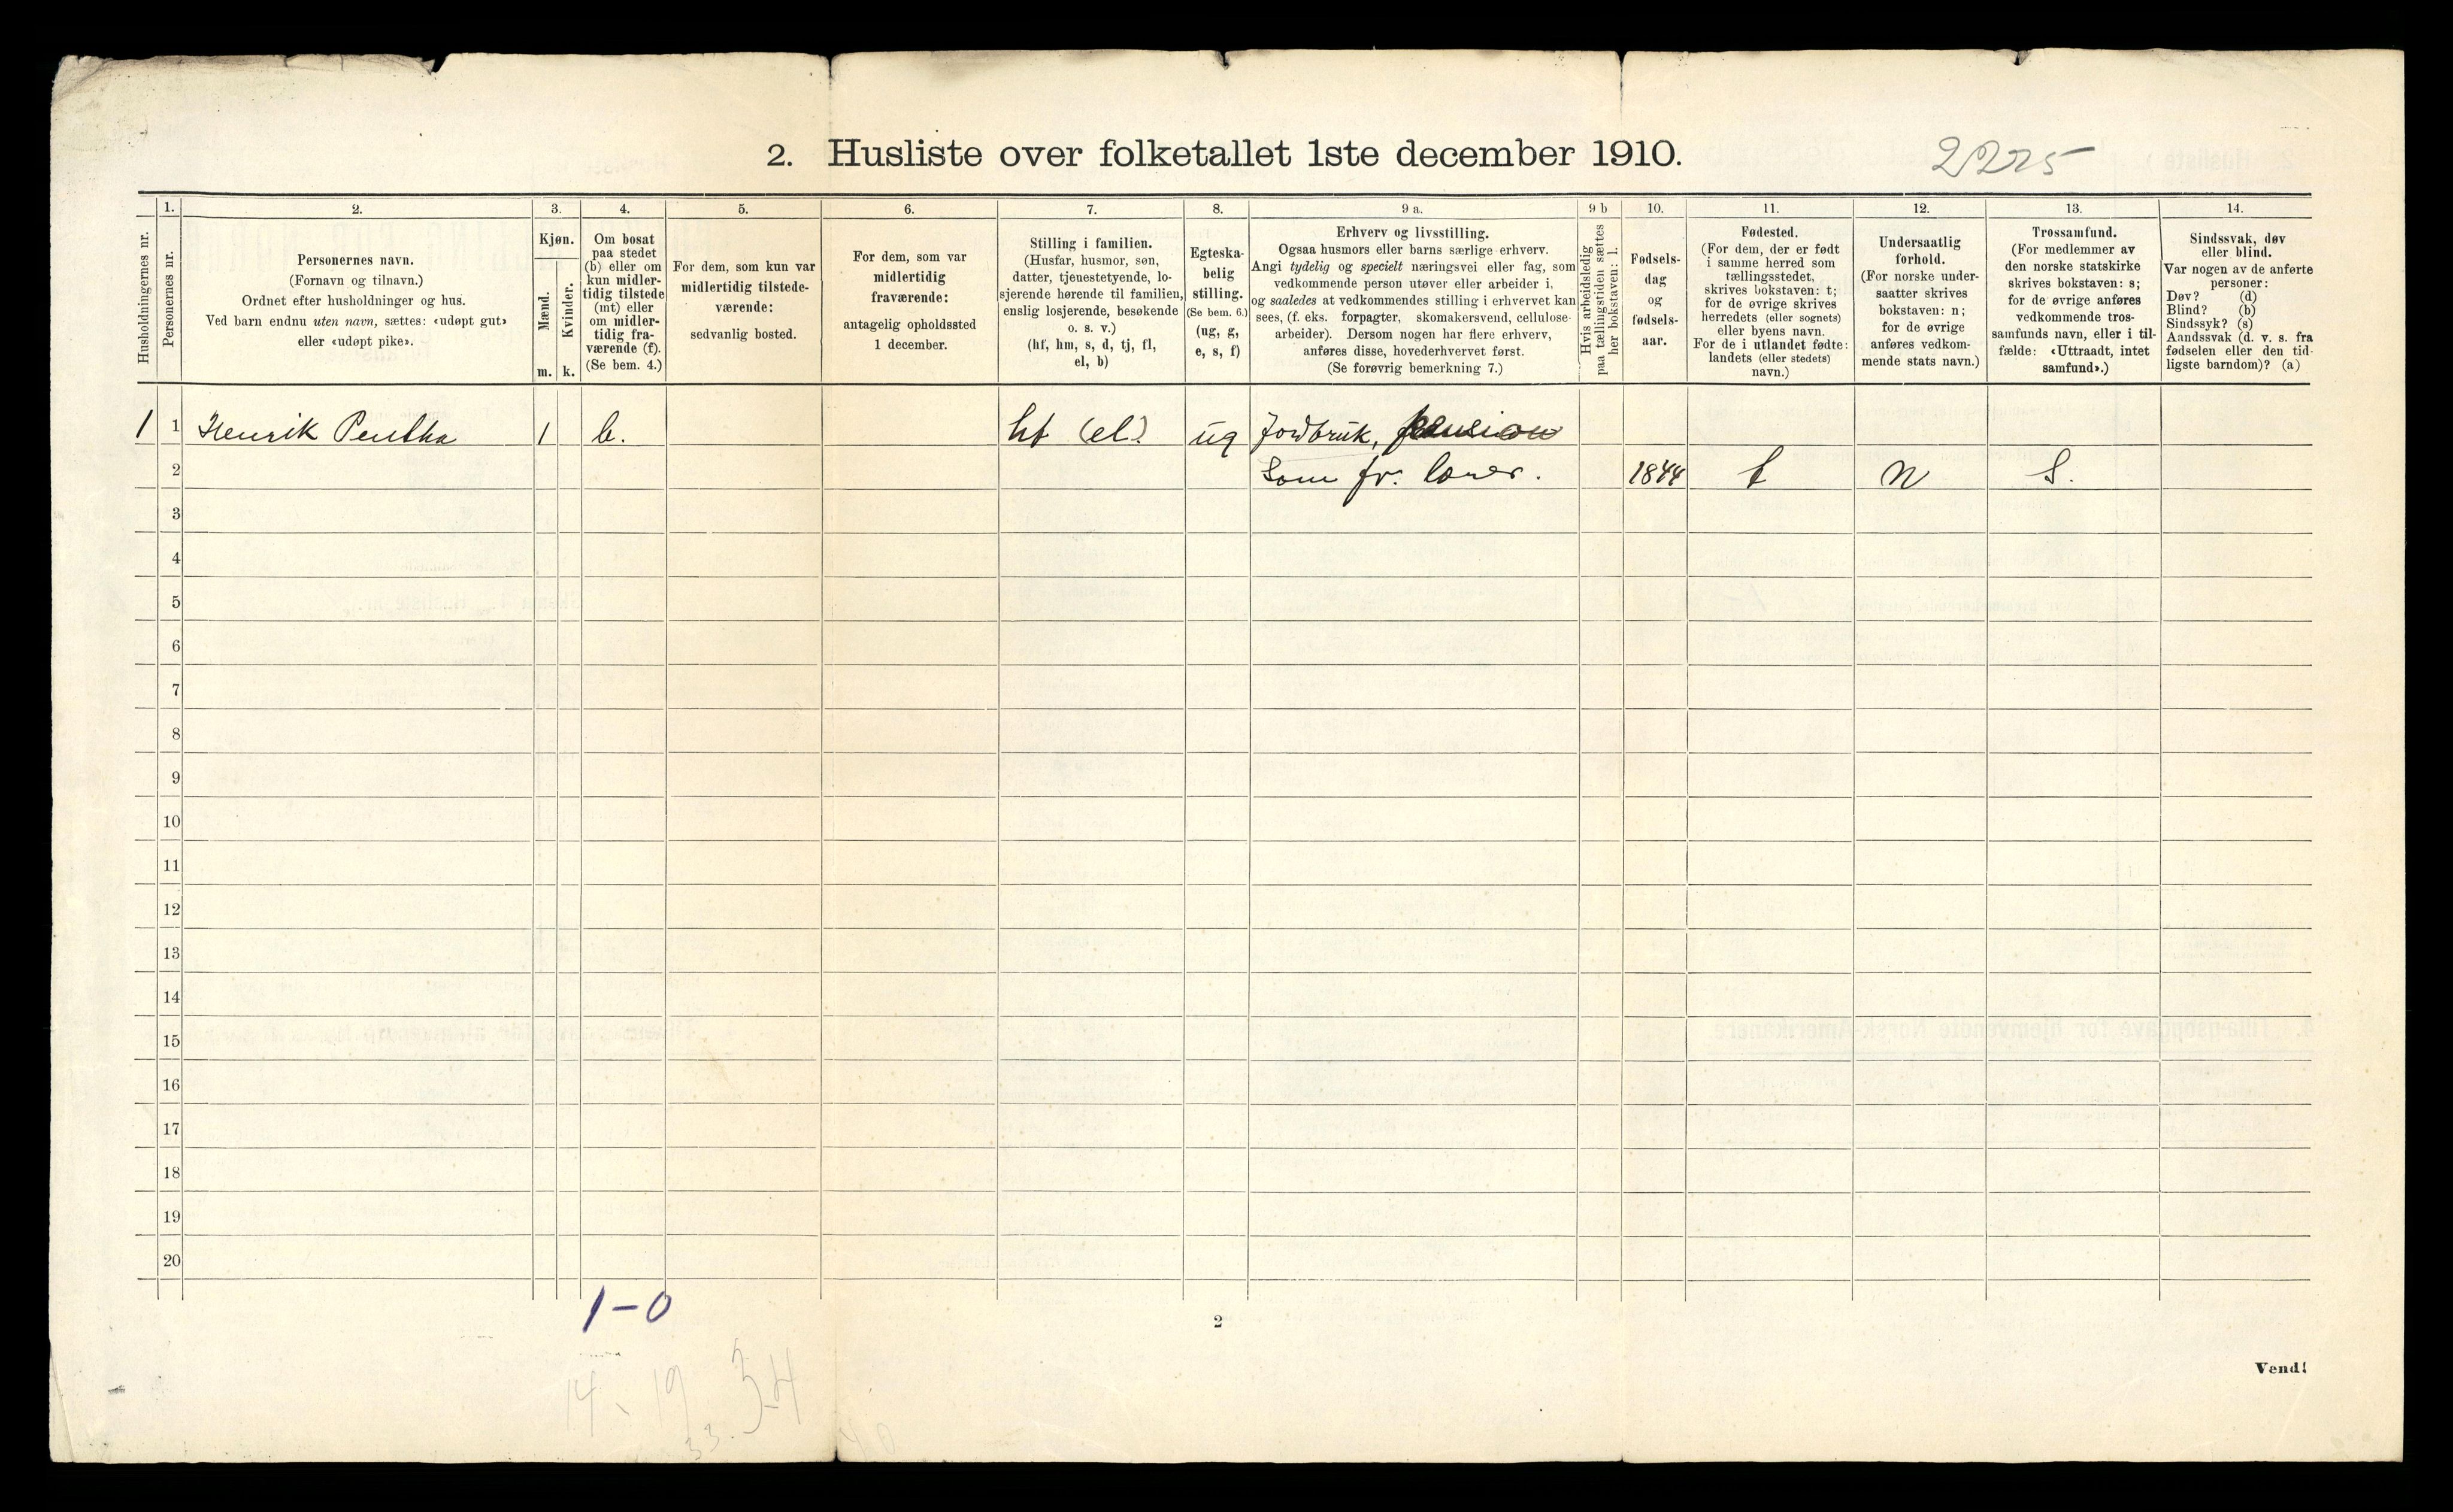 2. Husliste over folketallet 1ste december 1910.
2225
Husholdningernes nr.
1.
Personernes nr.
2.
Personernes navn.
(Fornavn og tilnavn.)
Ordnet efter husholdninger og hus.
Ved barn endnu uten navn, sættes: «udøpt gut»
eller «udøpt pike».
3.
Kjøn.
Mænd.
Kvinder.
m. k.
4.
Om bosat
paa stedet
(b) eller om
kun midler-
tidig tilstede
(mt) eller
om midler-
tidig fra-
værende (f).
(Se bem. 4.)
5.
For dem, som kun var
midlertidig tilstede-
værende:
sedvanlig bosted.
6.
For dem, som var
midlertidig
fraværende:
antagelig opholdssted
1 december.
7.
Stilling i familien.
(Husfar, husmor, søn,
datter, tjenestetyende, lo-
sjerende hørende til familien,
enslig losjerende, besøkende
o. s. v.)
(hf, hm, s, d, tj, fl,
el, b)
8.
Egteska-
belig
stilling.
(Se bem. 6.)
(ug, g,
e, s, f)
9 a.
Erhverv og livsstilling.
Ogsaa husmors eller barns særlige erhverv.
Angi tydelig og specielt næringsvei eller fag, som
vedkommende person utøver eller arbeider i,
og saaledes at vedkommendes stilling i erhvervet kan
sees, (f. eks. forpagter, skomakersvend, cellulose-
arbeider). Dersom nogen har flere erhverv,
anføres disse, hovederhvervet først.
(Se forøvrig bemerkning 7.)
9 b
Hvis arbeidsledig
paa tællingstiden sættes
her bokstaven: l.
10.
Fødsels-
dag
og
fødsels-
aar.
11.
Fødested.
(For dem, der er født
i samme herred som
tællingsstedet,
skrives bokstaven: t;
for de øvrige skrives
herredets (eller sognets)
eller byens navn.
For de i utlandet fødte:
landets (eller stedets)
navn.)
12.
Undersaatlig
forhold.
(For norske under-
saatter skrives
bokstaven: n;
for de øvrige
anføres vedkom-
mende stats navn.)
13.
Trossamfund.
(For medlemmer av
den norske statskirke
skrives bokstaven: s;
for de øvrige anføres
vedkommende tros-
samfunds navn, eller i til-
fælde: «Uttraadt, intet
samfund».)
14.
Sindssvak, døv
eller blind.
Var nogen av de anførte
personer:
Døv? (d)
Blind? (b)
Sindssyk? (s)
Aandssvak (d. v. s. fra
fødselen eller den tid-
ligste barndom)? (a)
1 1 Henrik Pentha 1 b. hf (el) ug Jordbruk, pension
2 Som fr. læner. 1844 t n S.
3
4
5
6
7
8
9
10
11
12
13
14
15
16
17
18
19
20
1-0
2
Vend!
14 19 34
33.
40